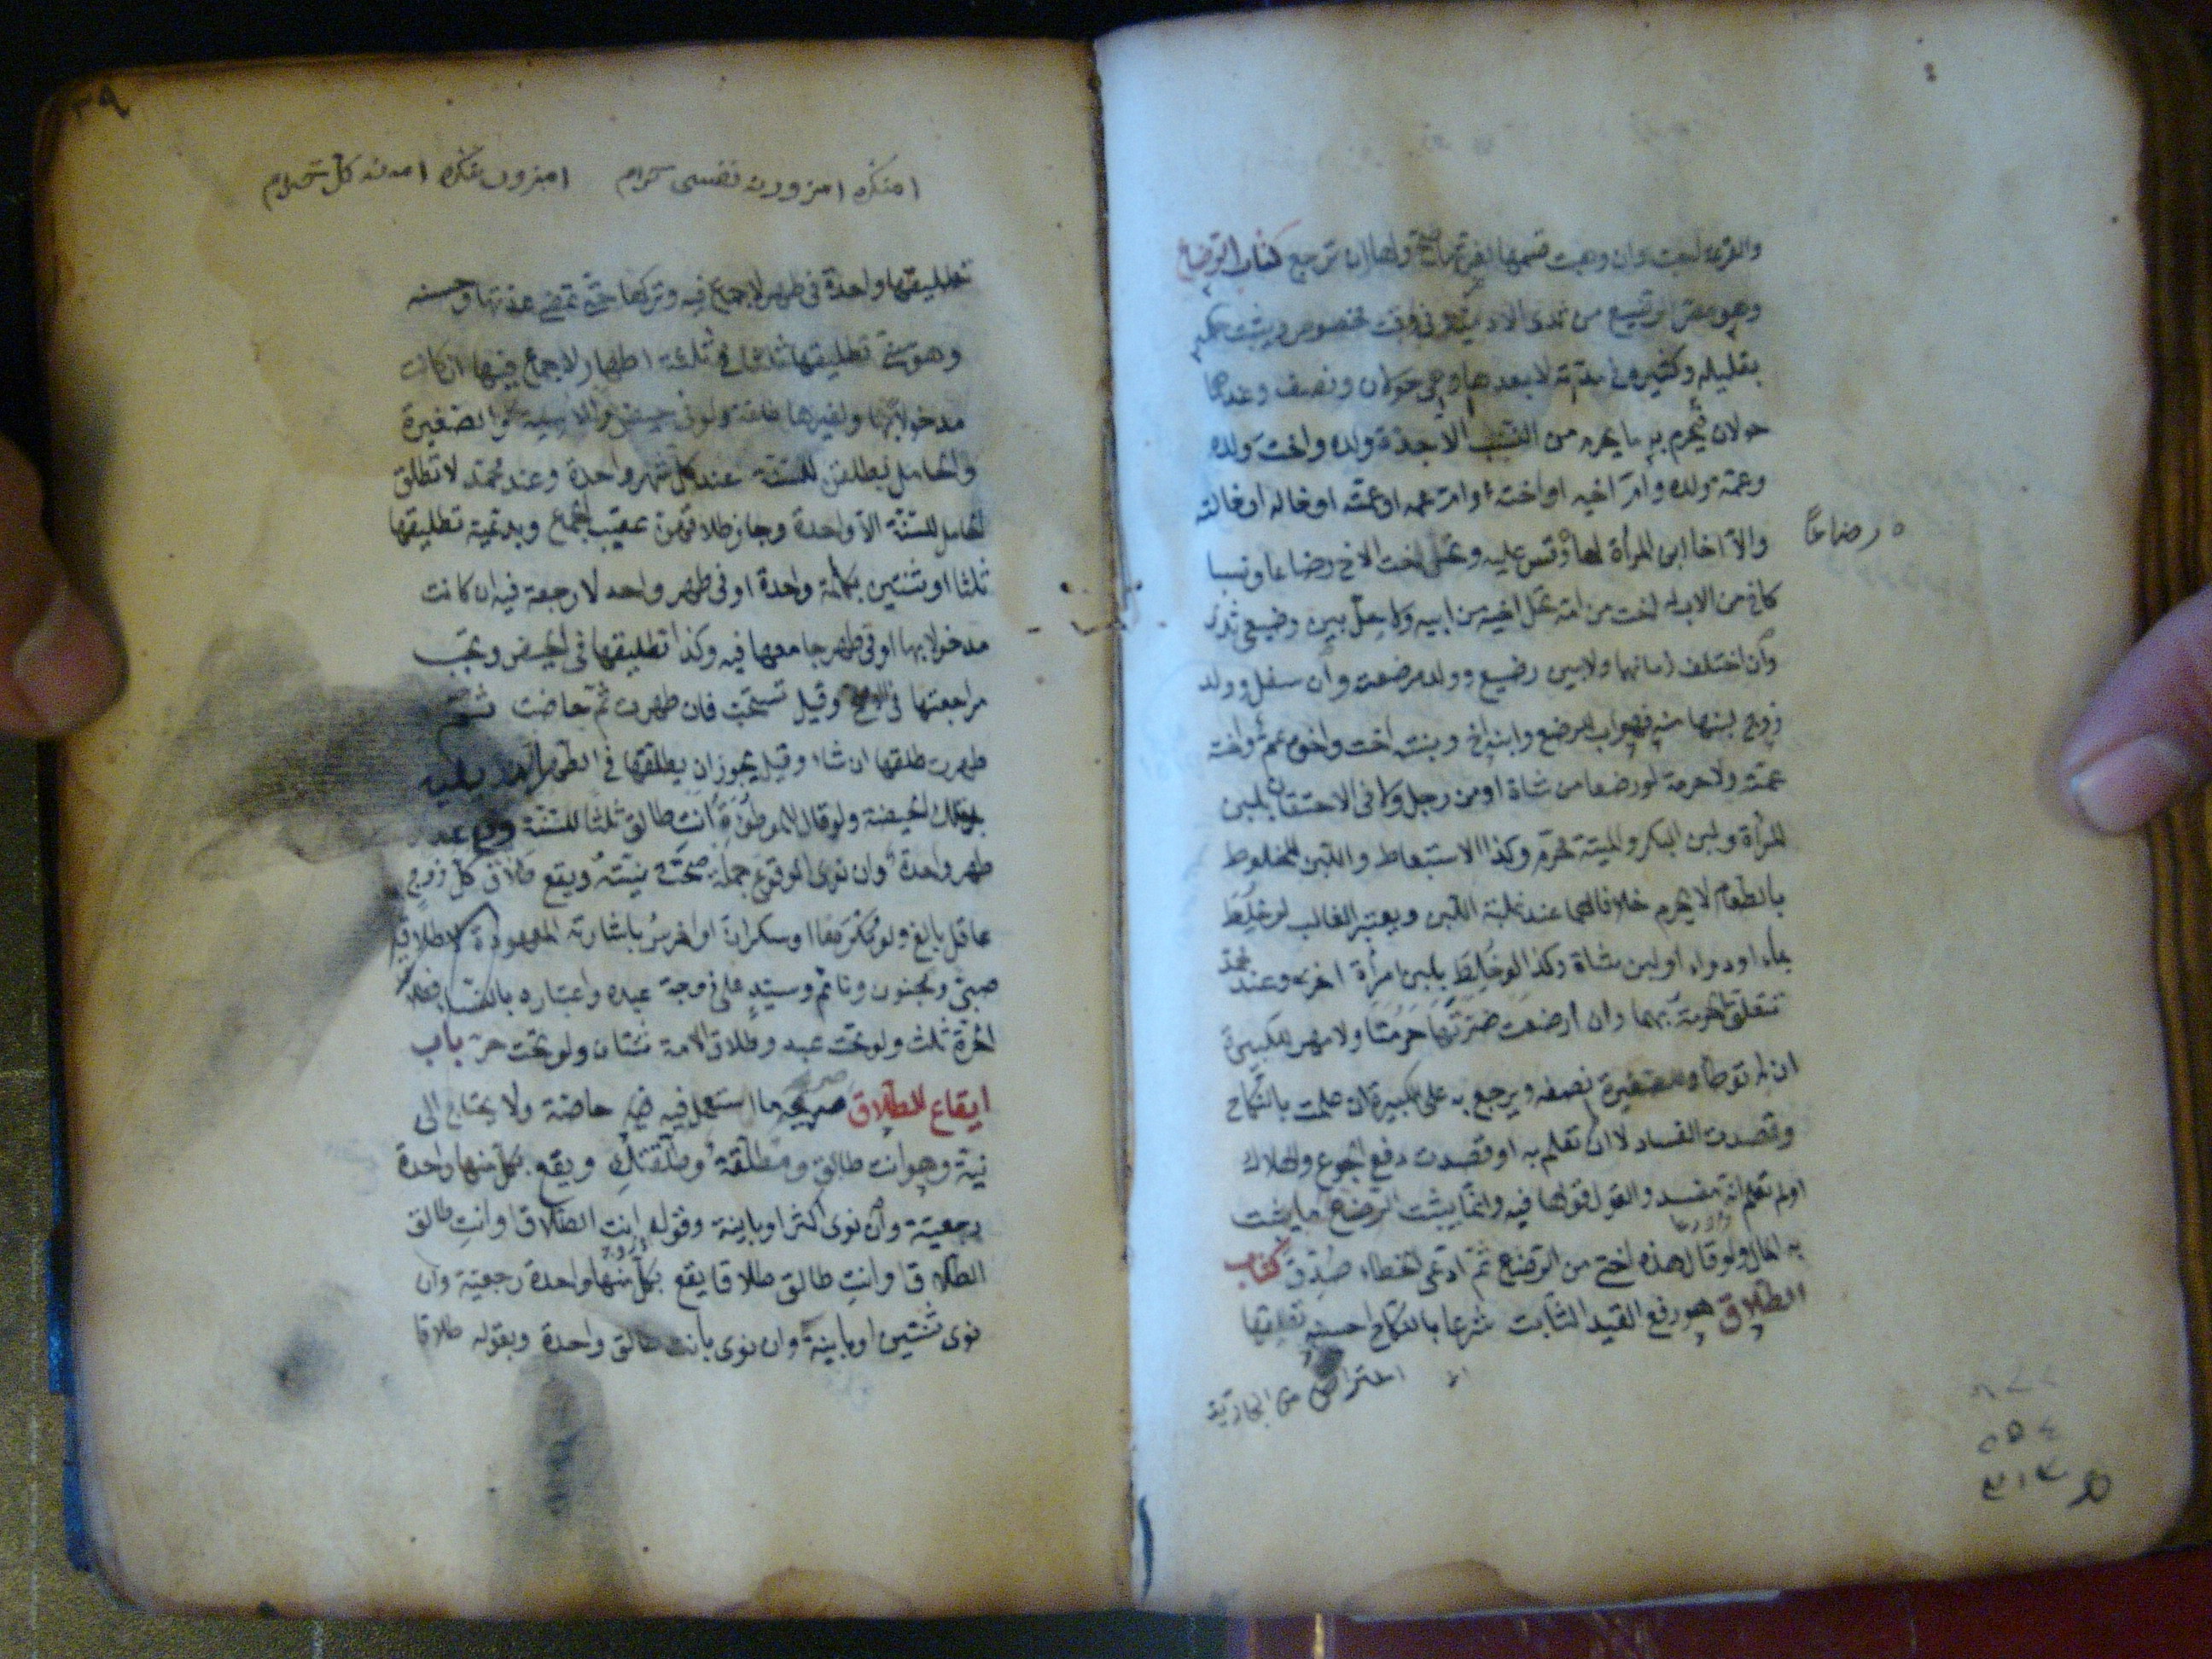 والقرعة احب وان وهبت قسمها لضرتها صح ولها ان ترجع كتاب الرضاع
وهو مص الرضيع من ثدى الادمية في وقت مخصوص ويثبت حكمه
بقليله وكثيره في مدته لا بعدها وهى حولان ونصف وعندهما
حولان فيحرم به ما يحرم من النسب الا جدة ولده واخت ولده
وعمة ولده وام اخيه او اخته او ام عمه او عمته او خاله او خالته
والا اخا ابن المرأة لها وقس عليه وتحل اخت الاخ رضاعا ونسبا
رضاعا
كاخ من الاب له اخت من امه تحل لاخيه من ابيه ولا حل بين رضيعى ثدى
وان اختلف زمانهما ولا بين رضيع وولد مرضعته وان سفل وولد
زوج لبنها منه فهو اب للرضيع وابنه اخ وبنته اخت واخوه عم واخته
عمته ولا حرمة لو رضعا من شاة او من رجل ولا في الاحتقان بلبن
المرأة ولبن البكر والميتة محرم وكذا الاستعاط واللبن المخلوط
بالطعام لا يحرم خلافا لهما عند غلبة اللبن ويعتبر الغالب لو خلط
بماء او دواء او لبن شاة وكذا لو خلط بلبن امرأة اخرى وعند محمد
تتعلق الحرمة بهما وان ارضعت ضرتها حرمتا ولا مهر للكبيرة
ان لم توطأ وللصغيرة نصفه ويرجع به على الكبيرة ان علمت بالنكاح
وقصدت الفساد لا ان لم تعلم به او قصدت دفع الجوع والهلاك
او لم تعلم انه مفسد والقول قولها فيه وانما يثبت الرضاع بما يثبت
به المال ولو قال هذه اختي من الرضاع ثم ادعى الخطاء صدق كتاب
الطلاق هو رفع القيد الثابت شرعا بالنكاح احسنه تطليقها
٣٩
امنكره امزوونه نفسى حرام
تطليقها واحدة في طهر لا جماع فيه وتركها حتى تمضى عدتها وحسنه
وهو سنى تطليقها ثلثا في ثلثة اطهار لا جماع فيها ان كانت
مدخولا بها ولغيرها طلقة ولو في حيض والايسة والصغيرة
والحامل يطلقن للسنة عند كل شهر واحدة وعند محمد لا تطلق
الحامل للسنة الا واحدة وجاز طلاقهن عقيب الجماع وبدعيه تطليقها
ثلثا او ثنتين بكلمة واحدة او في طهر واحد لا رجعة فيه ان كانت
مدخولا بها او في طهر جامعها فيه وكذا تطليقها في الحيض وتجب
مراجعتها في الاصح وقيل تستحب فان طهرت ثم حاضت ثم
طهرت طلقها ان شاء وقيل يجوز ان يطلقها في الطهر الذى يليه
تلك الحيضة ولو قال للموطوءة انت طالق ثلثا للسنة وقع عند كل
طهر واحدة وان نوى الوقوع جملة صحت نيته ويقع طلاق كل زوج
عاقل بالغ ولو مكرها او سكران او اخرس باشارته المعهودة لا طلاق
صبى ومجنون ونائم وسيد على زوجة عبده واعتباره بالنساء فطلاق
الحرة ثلث ولو تحت عبد وطلاق الامة ثنتان ولو تحت حر باب
ايقاع الطلاق صريحه ما استعمل فيه خاصة ولا يحتاج الى
نية وهو انت طالق ومطلقة وطلقتك ويقع بكل منها واحدة
رجعية وان نوى اكثر او باينة وقوله انت الطلاق او انت طالق
الطلاق او انت طالق طلاقا يقع بكل منها واحدة رجعية وان
نوى ثنتين او باينة وان نوى بانت طالق واحدة وبقوله طلاقا